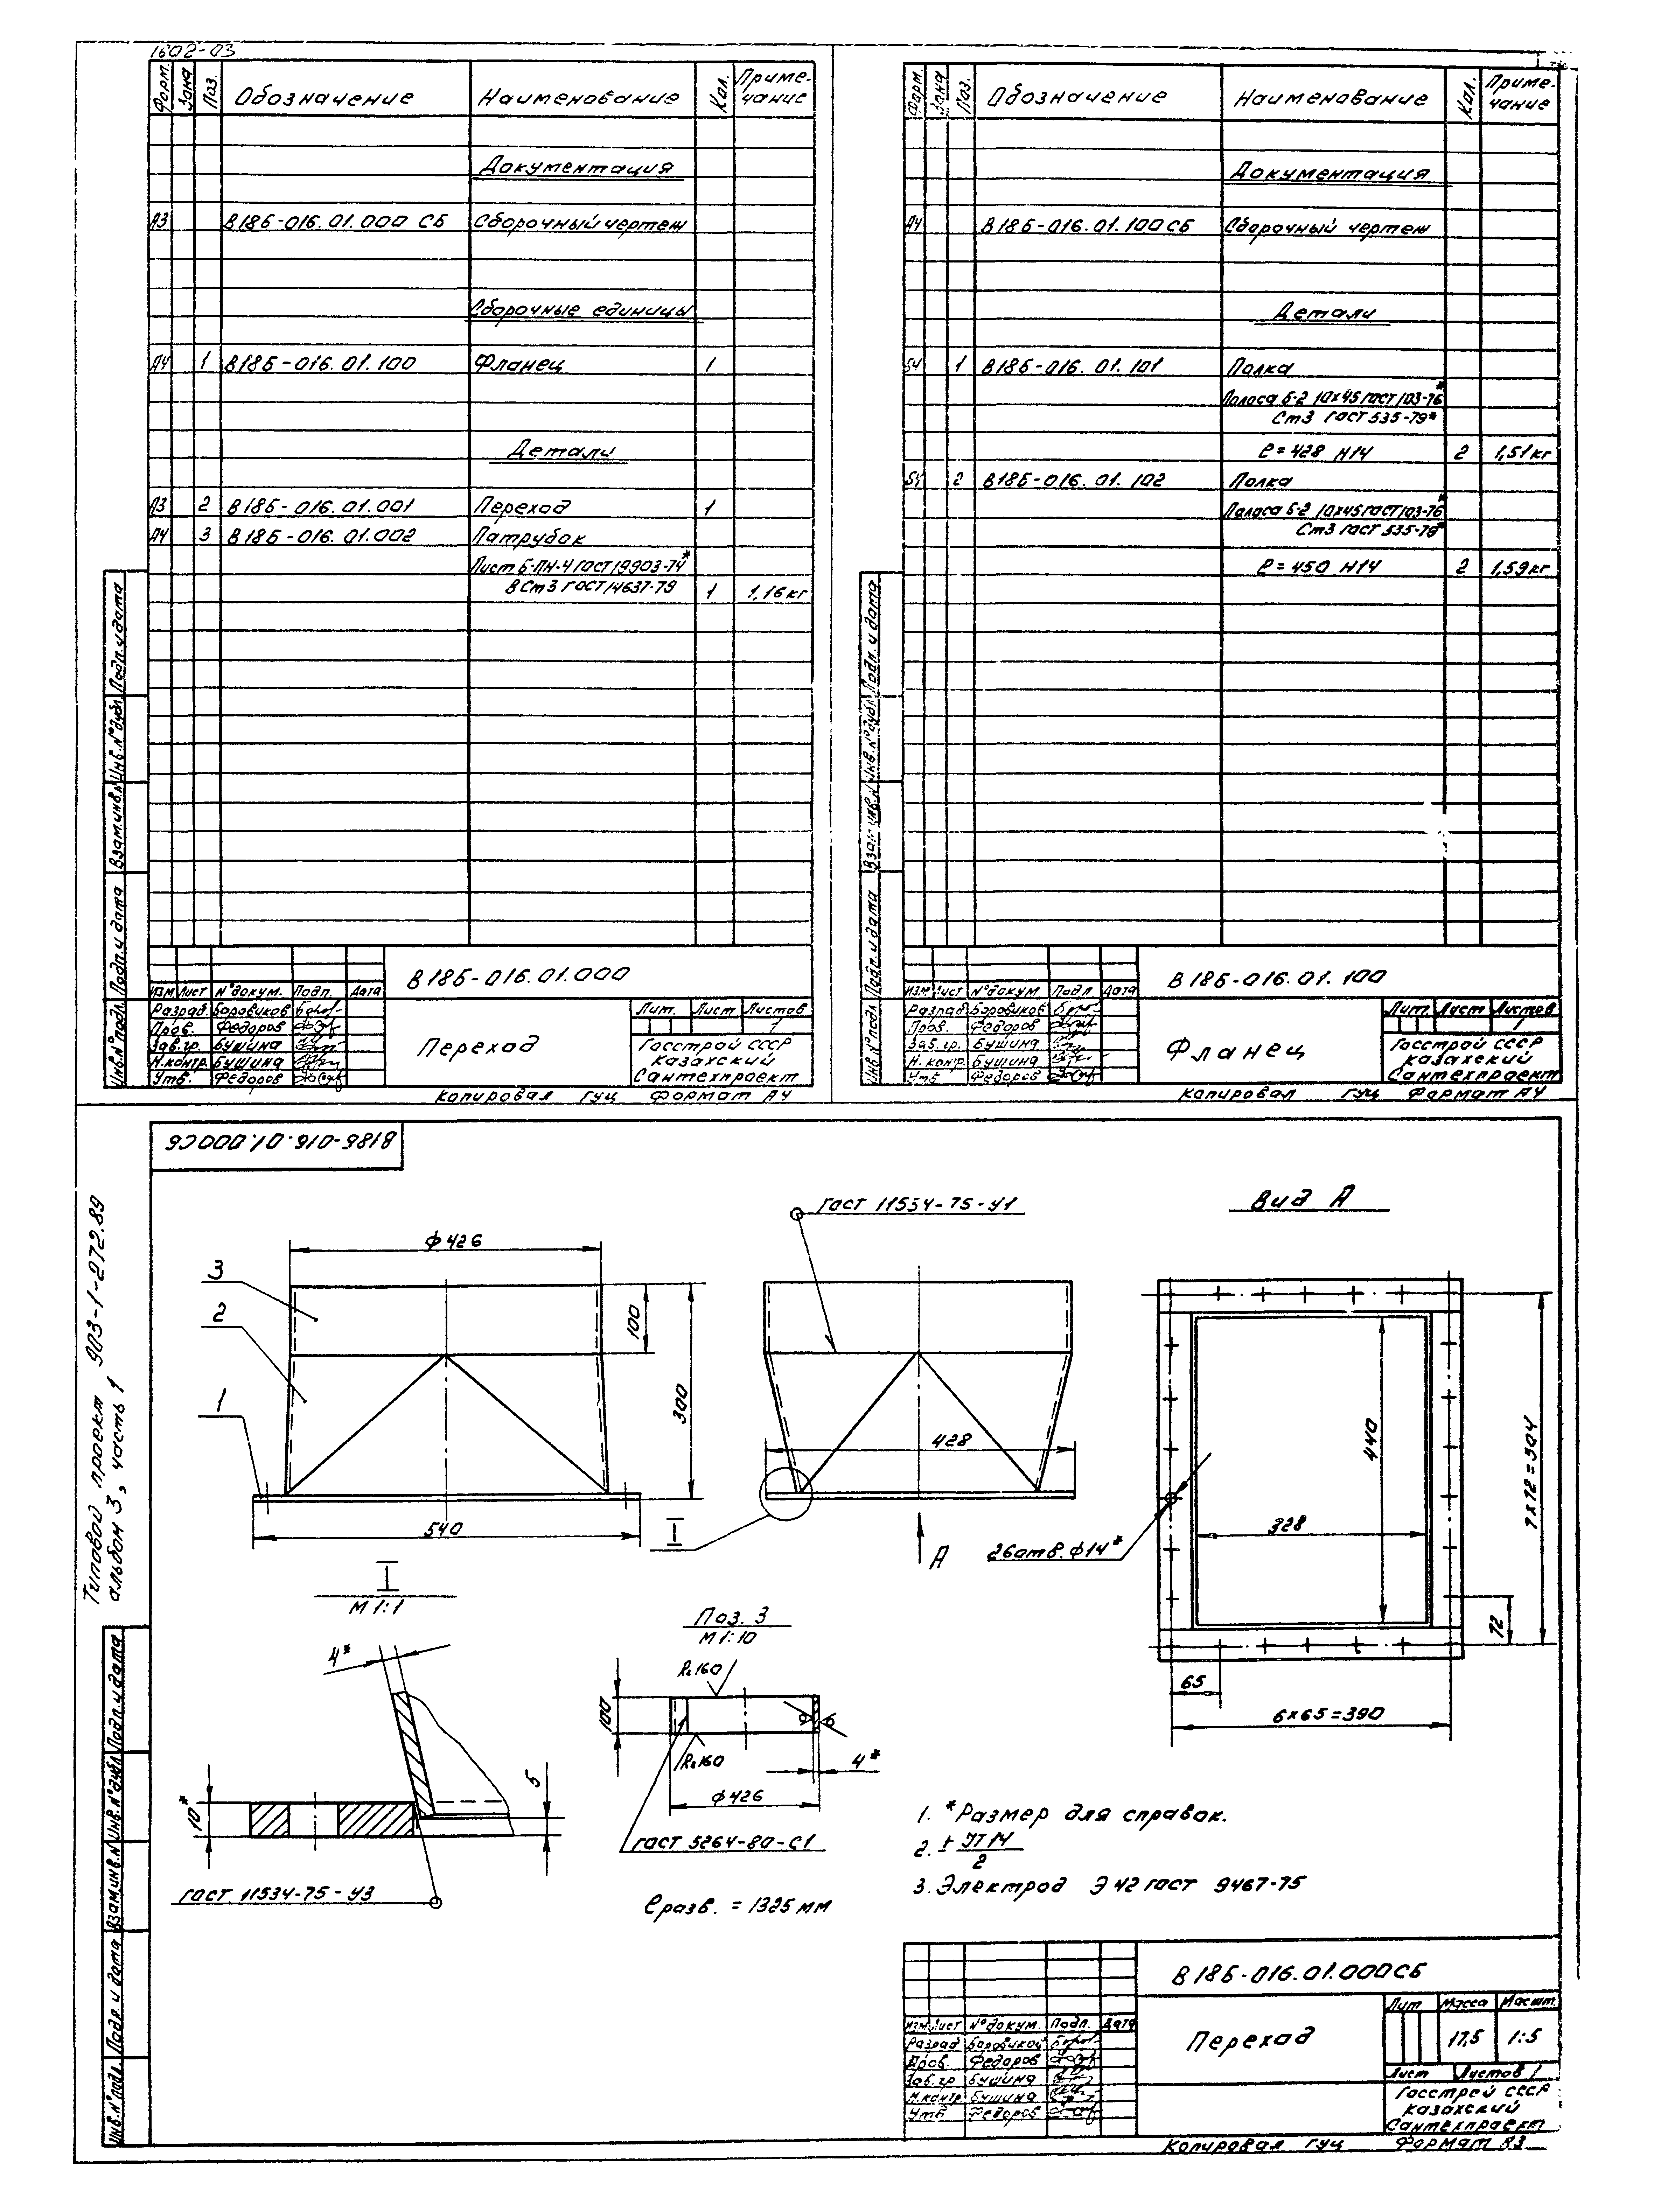 1602-03
Форм.
Зона
Поз.
Обозначение
Наименование
Кол.
Приме-
чание
Документация
А3 В18Б-016.01.000 СБ Сборочный чертеж
Сборочные единицы
А4 1 В18Б-016.01.100 Фланец 1
Детали
А3 2 В18Б-016.01.001 Переход 1
А4 3 В18Б-016.01.002 Патрубок
Лист Б-ПН-4 ГОСТ 19903-74*
ВСт3 ГОСТ 14637-79 1 1,16кг
Инв.№подл. Подп. и дата Взам.инв.№ Инв.№дубл. Подп. и дата
В18Б-016.01.000
Изм. Лист №докум. Подп. Дата
Разраб. Боровиков
Пров. Федоров
Зав.гр. Бушина
Н.контр. Бушина
Утв. Федоров
Переход
Лит. Лист Листов
1
Госстрой СССР
Казахский
Сантехпроект
Копировал ГУЦ Формат А4
Форм.
Зона
Поз.
Обозначение
Наименование
Кол.
Приме-
чание
Документация
А4 В18Б-016.01.100СБ Сборочный чертеж
Детали
БЧ 1 В18Б-016.01.101 Полка
Полоса Б-2 10х45 ГОСТ 103-76*
Ст3 ГОСТ 535-79*
ℓ=428 Н14 2 1,51кг
БЧ 2 В18Б-016.01.102 Полка
Полоса Б-2 10х45 ГОСТ 103-76*
Ст3 ГОСТ 535-79*
ℓ=450 Н14 2 1,59кг
Инв.№подл. Подп. и дата Взам.инв.№ Инв.№дубл. Подп. и дата
В18Б-016.01.100
Изм. Лист №докум Подп Дата
Разраб. Боровиков
Пров. Федоров
Зав.гр. Бушина
Н.контр. Бушина
Утв Федоров
Фланец
Лит. Лист Листов
1
Госстрой СССР
Казахский
Сантехпроект
Копировал ГУЦ Формат А4
В18Б-016.01.000СБ
Типовой проект 903-1-272.89
альбом 3, часть 1
ф426
3
2
1
100
300
540
ГОСТ 11534-75-У1
428
I
А
Вид А
440
328
26отв.ф14*
7х72=504
72
65
6х65=390
I
М1:1
4*
10*
5
ГОСТ 11534-75-У3
Поз. 3
М1:10
Rz160
100
Rz160
4*
ф426
ГОСТ 5264-80-С1
ℓразв. = 1325мм
1. *Размер для справок.
2. ± IT14
2
3. Электрод Э42 ГОСТ 9467-75
Инв.№подл. Подп. и дата Взам.инв.№ Инв.№дубл. Подп. и дата
В18Б-016.01.000СБ
Изм. Лист №докум. Подп. Дата
Разраб Боровиков
Пров. Федоров
Зав.гр Бушина
Н.контр Бушина
Утв Федоров
Переход
Лит Масса Масшт.
17,5 1:5
Лист Листов 1
Госстрой СССР
Казахский
Сантехпроект
Копировал ГУЦ Формат А3